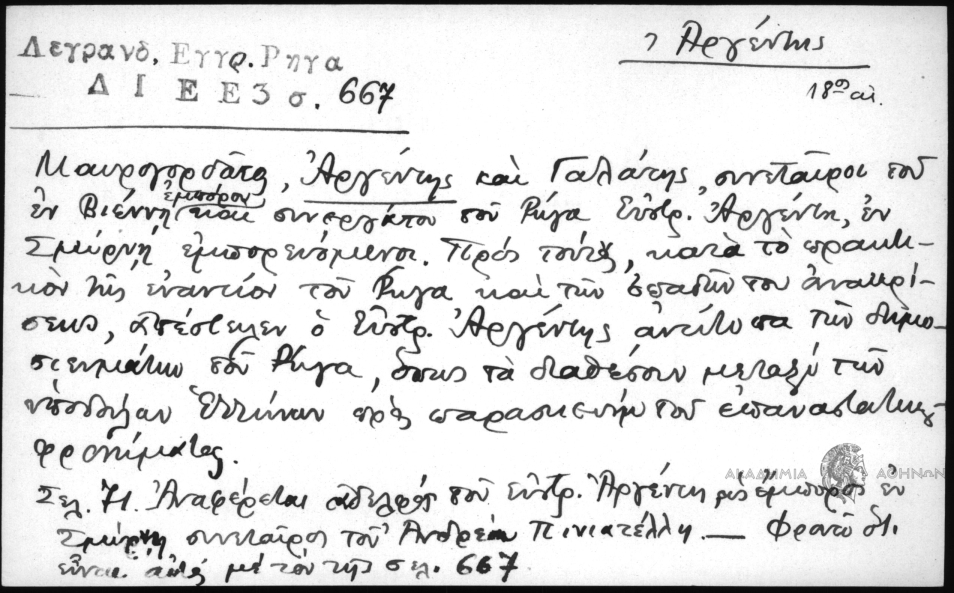 Λεγρανδ, Εγγρ. Ρηγα
Δ Ι Ε Ε 3 σ. 667
Ἀργέντης
18ου αἰ.
Μαυρογορδᾶτος, Ἀργέντης καὶ Γαλάτης, συνεταῖροι τοῦ
ἐν Βιέννῃ ἐμπόρου καὶ συνεργάτου τοῦ Ρήγα Εὐστρ. Ἀργέντη, ἐν
Σμύρνῃ ἐμπορευόμενοι. Πρὸς τούτους, κατὰ τὸ πρακτι-
κὸν τῆς ἐναντίον τοῦ Ρήγα καὶ τῶν ὀπαδῶν του ἀνακρί-
σεως, ἀπέστειλεν ὁ Εὐστρ. Ἀργέντης ἀντίτυπα τῶν δημο-
σιευμάτων τοῦ Ρήγα, ὅπως τὰ διαθέσουν μεταξὺ τῶν
ὑποδούλων Ἑλλήνων πρὸς παρασκευὴν τοῦ ἐπαναστατικοῦ
φρονήματος.
ΑΚΑΔΗΜΙΑ ΑΘΗΝΩΝ
Σελ. 71. Ἀναφέρεται ἀδελφὸς τοῦ εὐστρ. Ἀργέντη ὡς ἔμπορος ἐν
Σμύρνῃ συνεταῖρος τοῦ Ἀνδρέα Πινιατέλλη. — Φρονῶ ὅτι
εἶναι αὐτὸς μὲ τὸν τῆς σελ. 667.